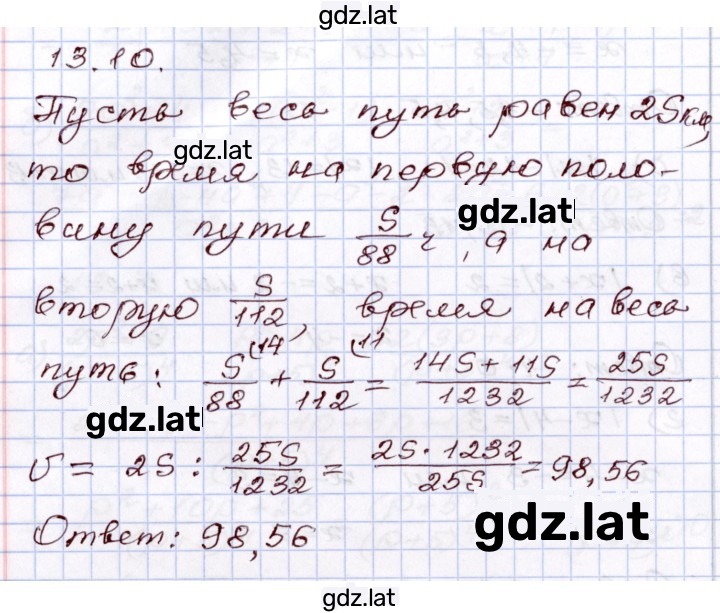 gdz.lat
13.10.
Пусть весь путь равен 2S км,
gdz.lat
то время на первую поло-
gdz.lat
вину пути S/88 ч, а на
вторую S/112, время на весь
путь: S/88 (14 + S/112 (11 = 14S + 11S/1232 = 25S/1232
gdz.lat
v = 2S : 25S/1232 = 2S · 1232/25S = 98,56
gdz.lat
Ответ: 98,56
gdz.lat